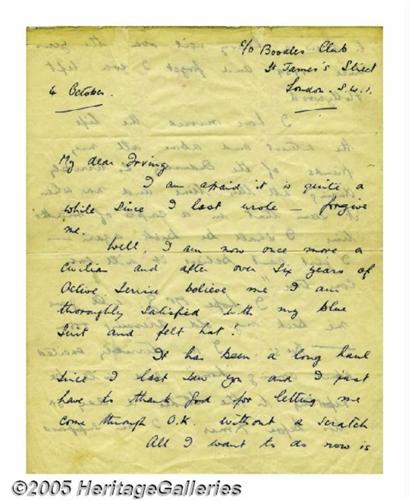 c/o Boodles Club
St James's Street
London. S.W.1.
6 October.
My dear Irving
I am afraid it is quite a
while since I last wrote — forgive
me.
Well, I am now once more a
Civilian and after over six years of
Active Service believe me I am
thoroughly satisfied with my blue
Suit and felt hat!
It has been a long haul
since I last saw you and I just
have to thank God for letting me
come through O.K. without a scratch
All I want to do now is
©2005 HeritageGalleries